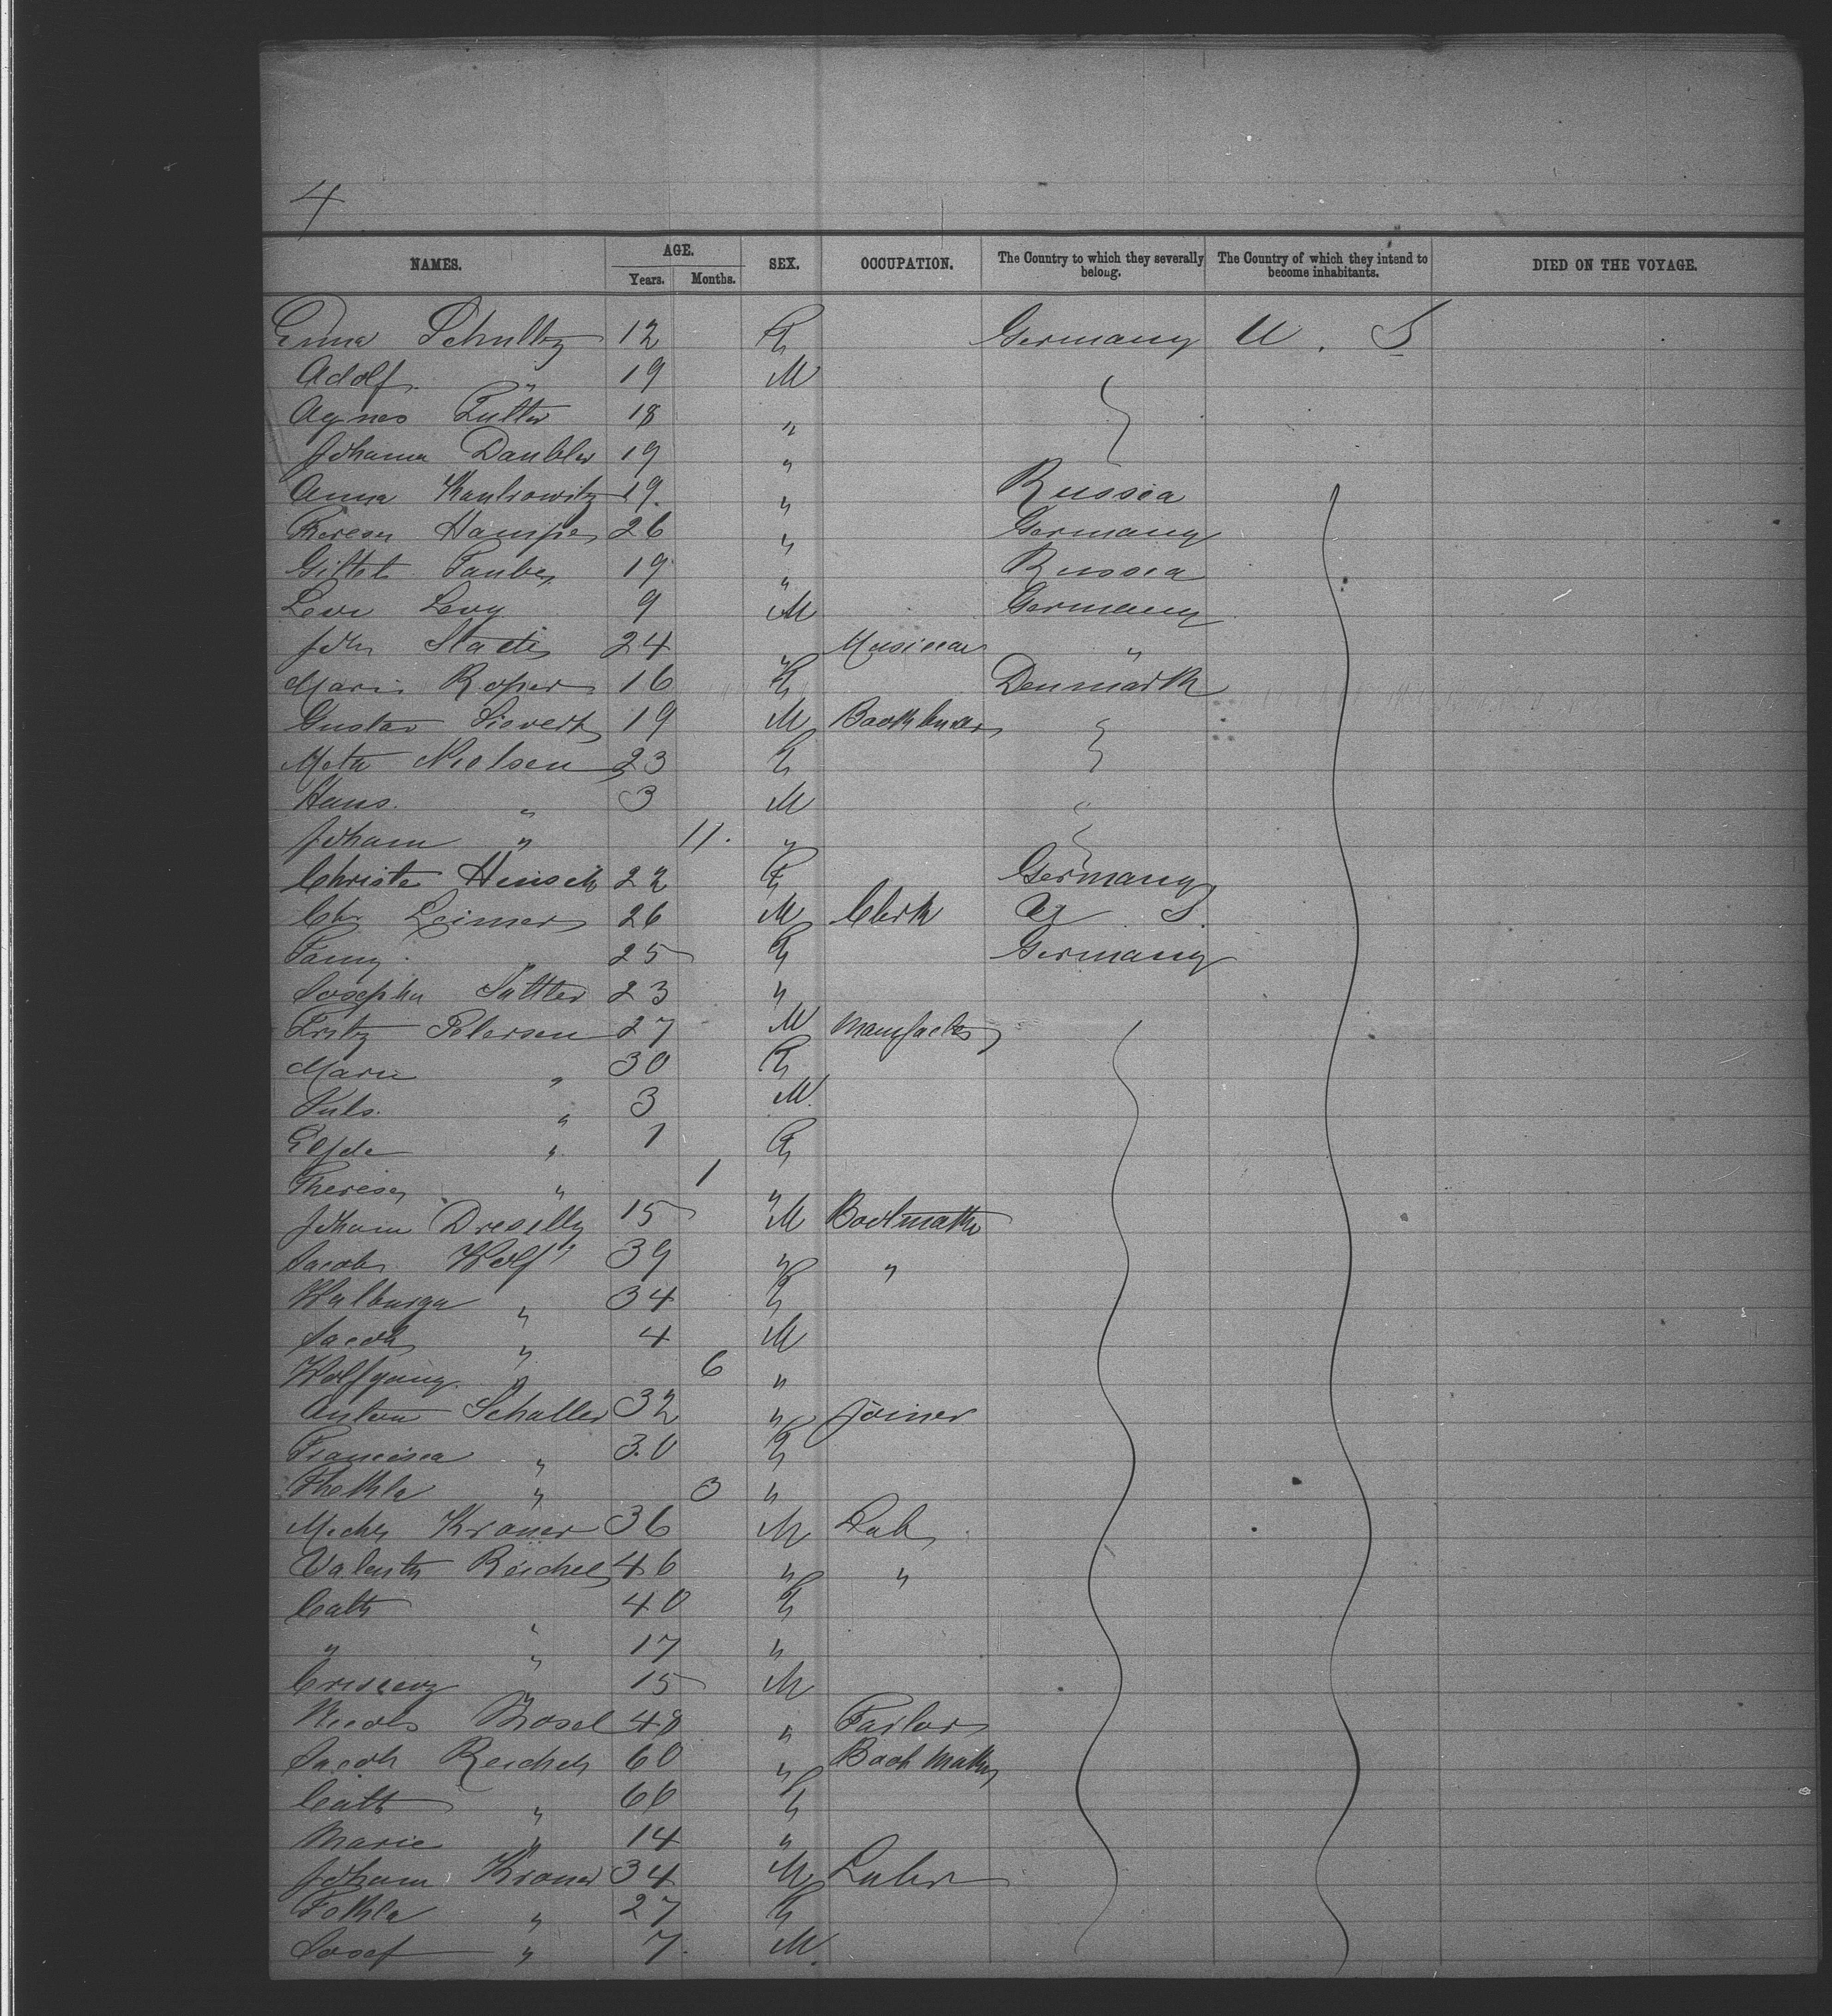 4
NAMES. AGE. SEX. OCCUPATION. The Country to which they severally belong. The Country of which they intend to become inhabitants. DIED ON THE VOYAGE.
Years. Months.
Schultz 12 F Germany U. S
Adolf " 19 M
Agnes 18 "
Johanna Daubler 19 "
Anna Kantrowitz 19. " Russia
Theresa Hampe 26 " Germany
Gittel Taube 19 " Russia
Levi Levy 9 M Germany
John Stade 24 " Musician "
Marie Roper 16 F Denmark
Gustav Sievert 19 M
Meta Nielsen 23 F
Hans " 3 M
Joham " 11. "
Christe Hensch 22 F Germany
Chr Leimer 26 M Clerk U S.
Fanny " 25 F Germany
Josepha Sattler 23 "
Fritz Petersen 27 M
Marie " 30 F
" 3 M.
" 1 F
Theresa " 1 "
Joham 15 M Bootmaker
Jacob Wolf 39 " "
Walburga " 34 F
Jacob " 4 M
Wolfgang " 6 "
Anton Schaller 32 " Joiner
Francisca " 30 F
Thekla " 3 "
Mich Kraner 36 M Lab
Valentin Reichel 46 " "
Cath " 40 F
" " 17 "
Crescenz " 15 M
48 " Tailor
Jacob Reichel 60 " Boot Maker
Cath " 60 F
Marie " 14 "
Joham Kraner 34 M Labr
Tekla " 27 F
Josef " 7. M.